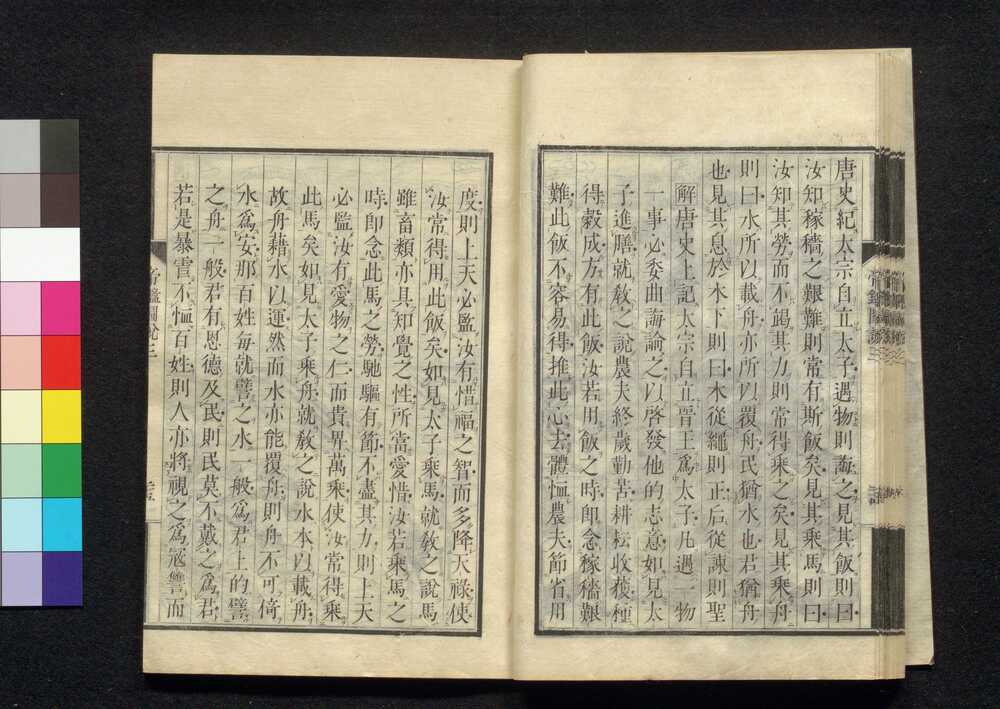 唐史紀太宗自立太子遇物則誨之見其飯則曰
汝知稼穡之艱難則常有斯飯矣見其乘馬則曰
汝知其勞而不竭其力則常得乘之矣見其乘舟
則曰水所以載舟亦所以覆舟民猶水也君猶舟
也見其息於木下則曰木從繩則正后從諫則聖
解唐史上記太宗自立晉王爲太子凡遇一物
一事必委曲誨諭之以啓發他的志意如見太
子進膳就教之說農夫終歲勤苦耕耘收穫種
得穀成方有此飯汝若用飯之時即念稼穡艱
難此飯不容易得推此心去體恤農夫節省用
度則上天必監汝有惜福之智而多降天祿使
汝常得用此飯矣如見太子乘馬就教之說馬
雖畜類亦具知覺之性所當愛惜汝若乘馬之
時即念此馬之勞馳驅有節不盡其力則上天
必監汝有愛物之仁而貴畀萬乘使汝常得乘
此馬矣如見太子乘舟就教之說水本以載舟
故舟藉水以運然而水亦能覆舟則舟不可倚
水爲安那百姓每就譬之水一般爲君上的譬
之舟一般君有恩德及民則民莫不戴之爲君
若是暴虐不恤百姓則人亦將視之爲寇讐而